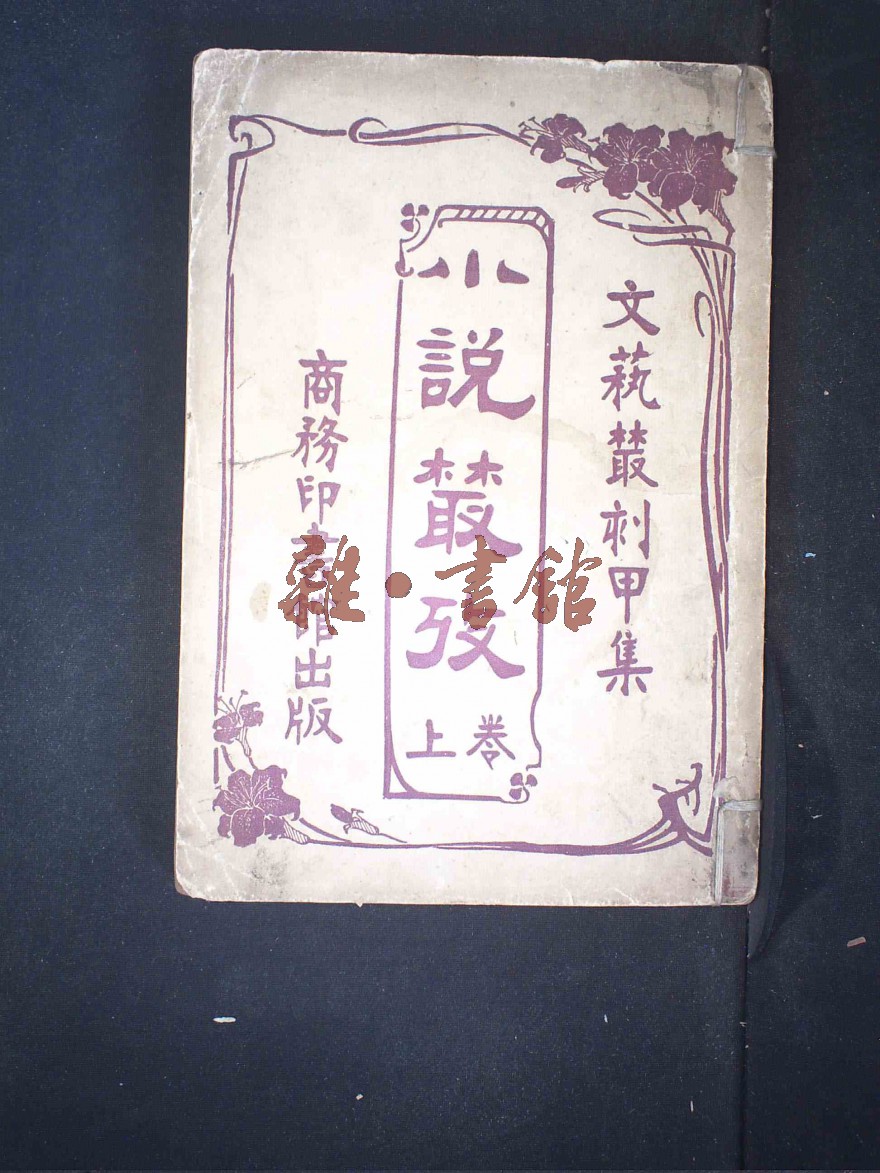 文蓺叢刻甲集
小說叢攷
卷上
商務印書館出版
雜·書館